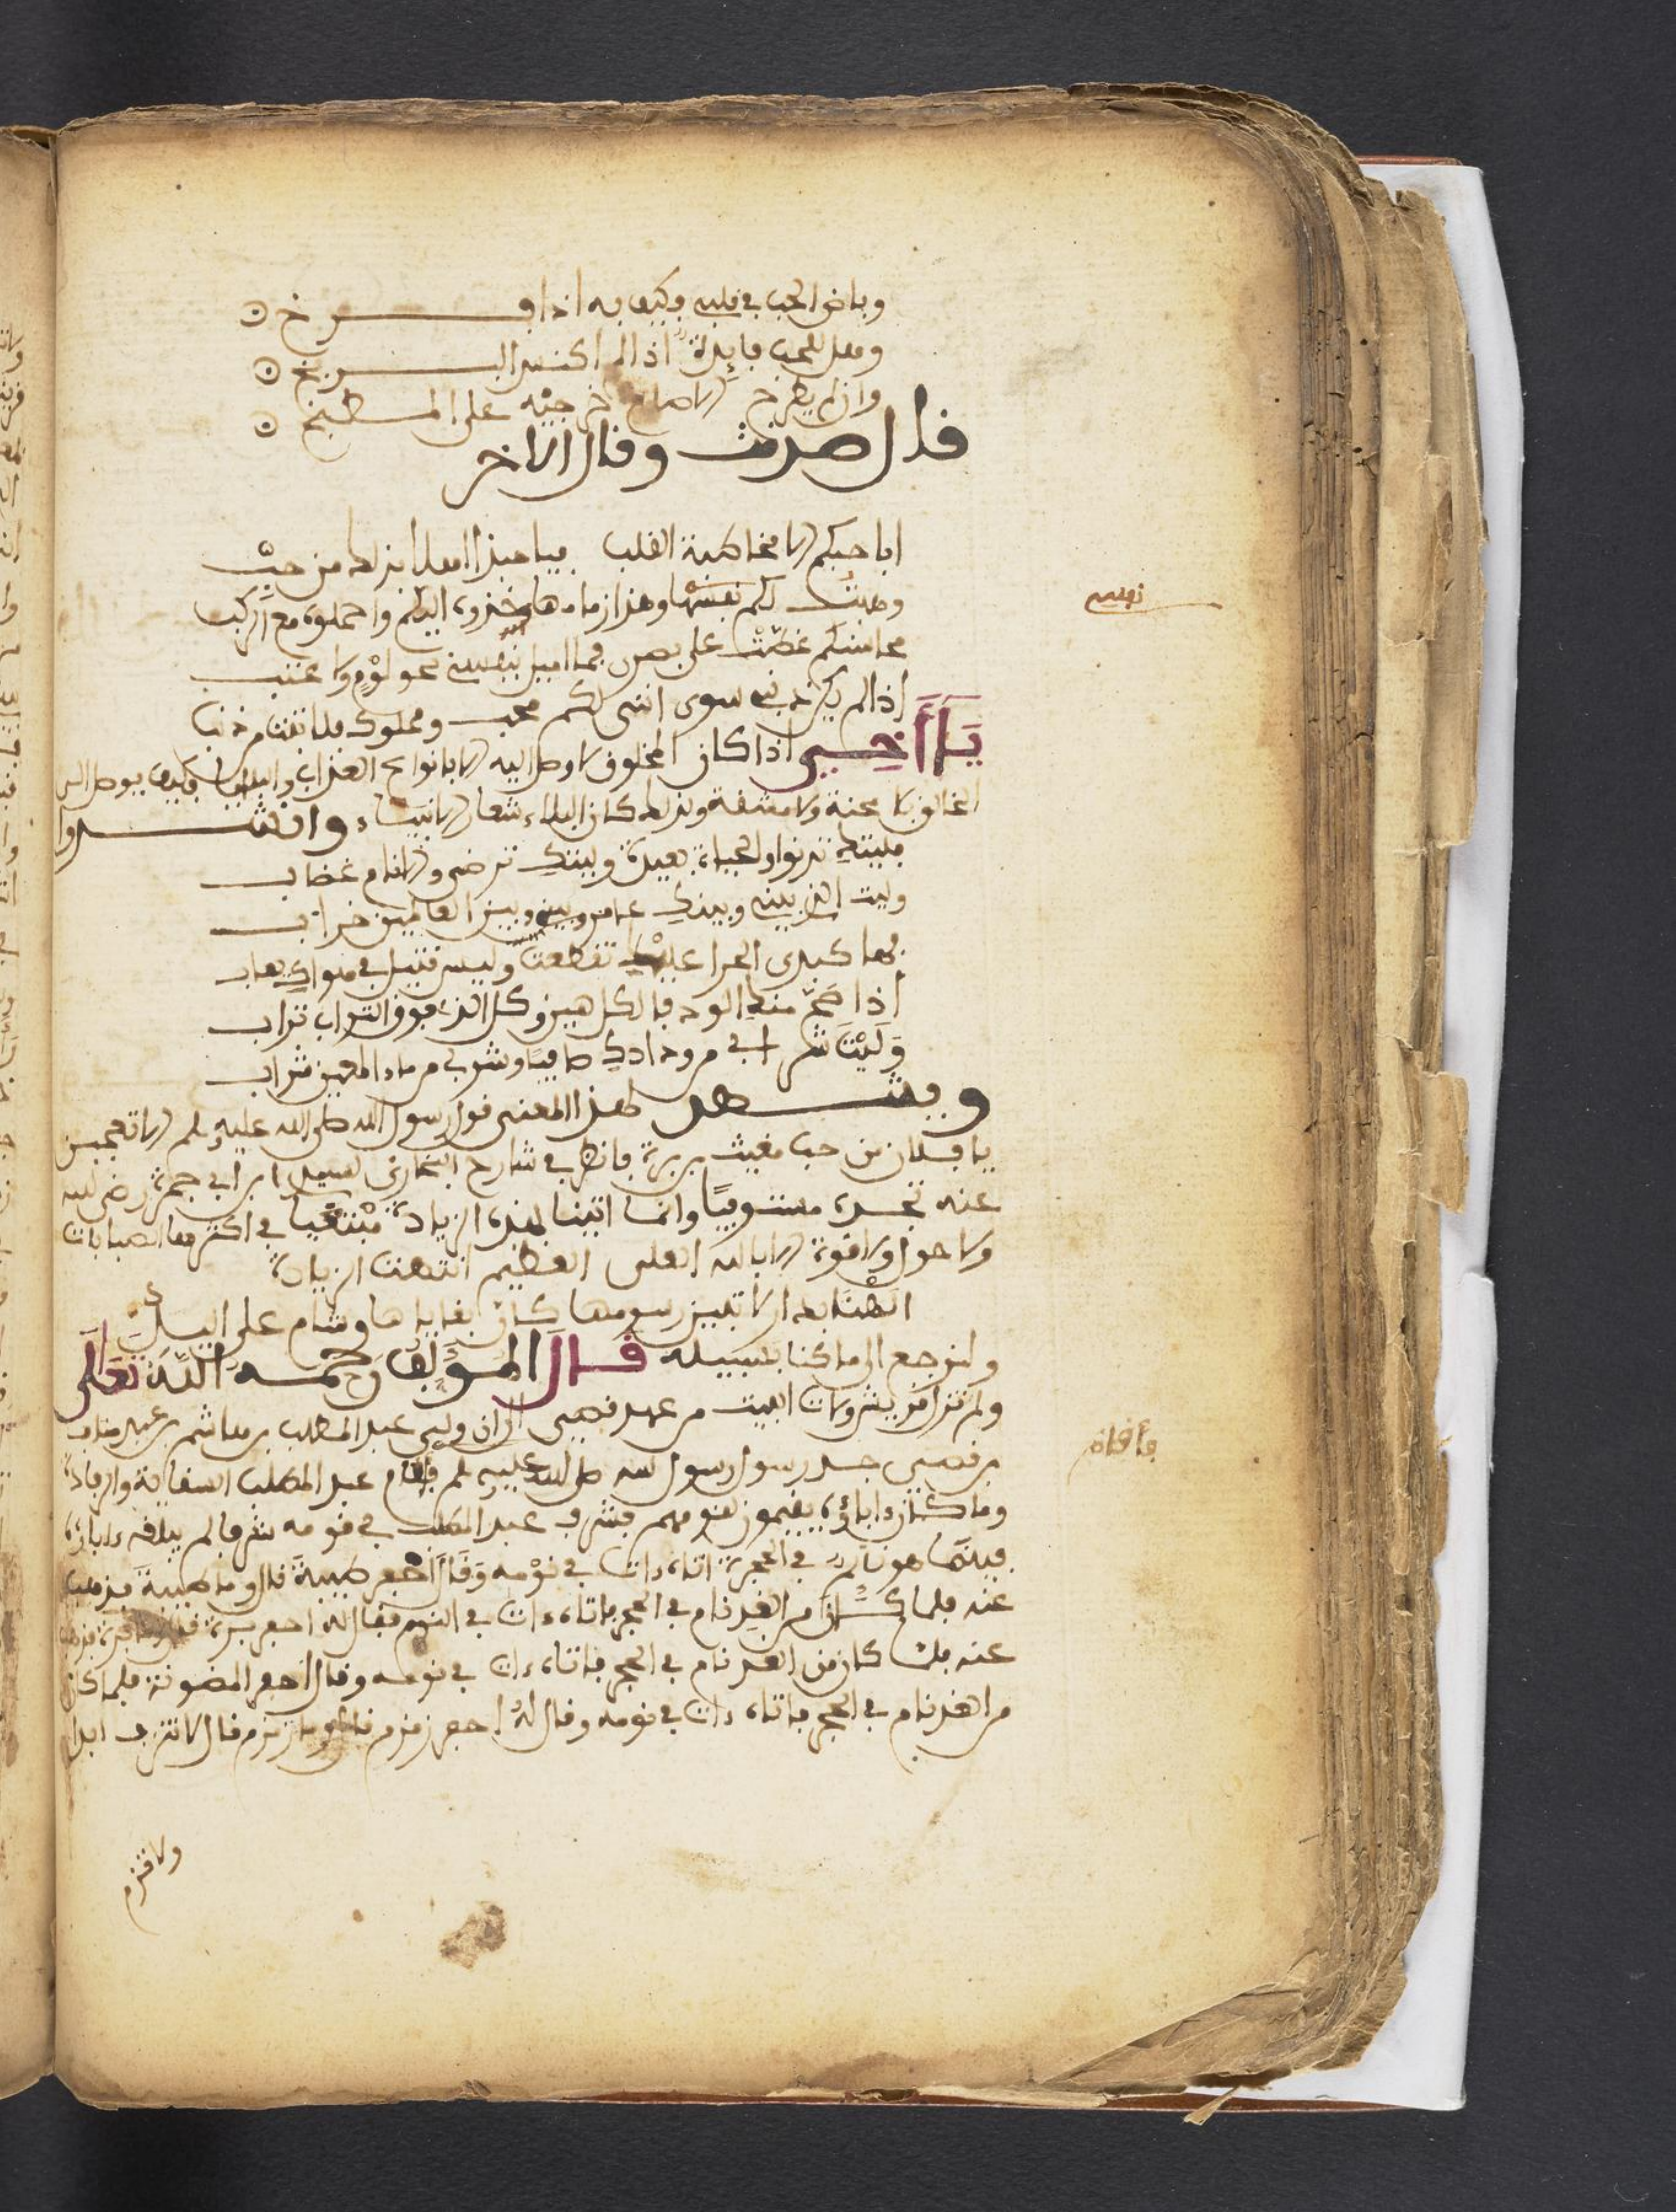 وباض الحب في قلبي فكيف به اذا فرخ
وهل للحب فايدة اذا لم اكنس البربخ
وان لم يطرح خرجيه على المطبخ
قال صدقت وقال الاخر
ابا حبكم الا مخاطبة القلب فيا حبذا اهلا بذلك من حب
وهبت لكم نفسي وهذا زمامها خذوه اليكم واحملوه مع الركب
محاسنكم غطت على بصري فما اميل بنفسي نحو لوم ولا عتب
اذا لم يكن ذنبي سوى انني لكم محب ومملوك فلا تبت من ذنب
يا أخي اذا كان المخلوق لا وصل اليه الا بانواع العذاب والبلايا فكيف يوصل الى
الخالق بلا محنة ولا مشقة ولذلك كان البلاء شعار الانبياء وانشدوا
فليتك تدنوا والحياة بعيدة وليتك ترضى والانام غضاب
وليت الذي بيني وبينك عامر وبيني وبين العالمين خراب
فها كبدي الحرا عليك تقطعت وليس قتيل في هواك يعاب
اذا صح منك الود فالكل هين وكل الذي فوق التراب تراب
وليت شرابي من ودادك صافيا وشربي من ماء المعين شراب
ويشهد لهذا المعنى قول رسول الله صلى الله عليه وسلم الا تعجبون
يا فلان من حب مغيث بريرة فانظر في شارح البخاري لسيدي ابن ابي جمرة رضي الله
عنه تجده مستوفيا وانما اتينا بهذه الزيادة في اكثرها الصبابات
ولا حول ولا قوة الا بالله العلي العظيم انتهت الزيادة
اطنابه الا تبين رسومها كان بقاياها وشام على اليد
ولنرجع الى ما كنا بسبيله قال المؤلف رحمه الله تعالى
ولم تزل قريش ولات البيت من عهد قصي الى ان ولي عبد المطلب بن هاشم بن عبد مناف
بن قصي جد رسول رسول الله صلى الله عليه وسلم فاقام عبد المطلب السقاية والرفادة
وما كان ءاباؤه يقيمون لقومهم فشرف عبد المطلب في قومه شرفا لم يبلغه ءاباؤه
فبينما هو نائم في الحجرة اتاه ءات في نومه وقال احفر طيبة قال وما طيبة فذهب
عنه فلما كان من الغد نام في الحجر فاتاه ءات في النوم فقال له احفر برة فقال وما برة فذهب
عنه فلما كان من الغد نام في الحجر فاتاه ءات في نومه وقال احفر المضنونة فلما كان
من الغد نام في الحجر فاتاه ءات في نومه وقال له احفر زمزم قال وما زمزم قال لا تنزف ابدا
ولا تذم
نفسي
فأقام